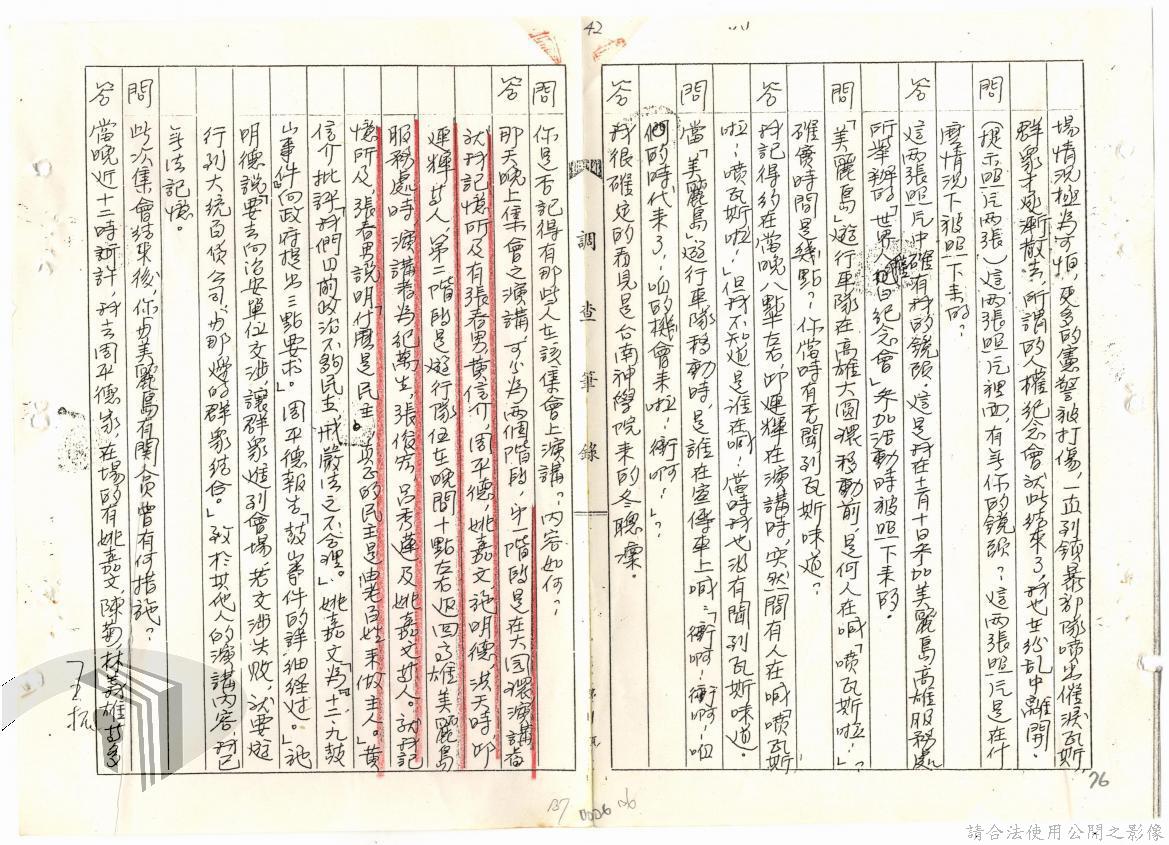 42
場情況極為可怕，更多的憲警被打傷，一直到鎮暴部隊噴出催淚瓦斯，
群眾才逐漸散去，所謂的人權紀念會就此結束了，我也在紛亂中離開。
問 （提示照片兩張）這兩張照片裡面，有無你的鏡頭？這兩張照片是在什
麼情況下被照下來的？
答 這兩張照片中確有我的鏡頭。這是我在十二月十日參加美麗島高雄服務處
所舉辦的「世界人權日紀念會」參加活動時被照下來的。
問 「美麗島」遊行車隊在高雄大圓環移動前，是何人在喊「噴瓦斯啦！」
確實時間是幾點？你當時有否聞到瓦斯味道？
答 我記得約在當晚八點左右，邱連輝在演講時，突然間有人在喊「噴瓦斯
啦！噴瓦斯啦！」但我不知道是誰在喊，當時我也沒有聞到瓦斯味道。
問 當「美麗島」遊行車隊移動時，是誰在宣傳車上喊：「衝啊！衝啊！咱
們的時代來了，咱的機會來啦！衝啊！」？
答 我很確定的看見是台南神學院來的冬聰凜。
調查筆錄
問 你是否記得有那些人在該集會上演講？內容如何？
答 那天晚上集會之演講，可分為兩個階段，第一階段是在大圓環演講者
就我記憶所及有張春男、黃信介、周平德、姚嘉文、施明德、洪天時、邱
連輝等人、第二階段是遊行隊伍在晚間十點左右返回高雄美麗島
服務處時，演講者為紀萬生，張俊宏，呂秀蓮及姚嘉文等人。就我記
憶所及，張春男說明「什麼是民主，真正的民主是由老百姓來做主人。」黃
信介批評「我們目前政治不夠民主，戒嚴法之不合理。」姚嘉文為「十二、九鼓
山事件」向政府提出三點要求」。周平德報告「鼓山事件的詳細經過。」施
明德說「要去向治安單位交涉，讓群眾進到會場，若交涉失敗，就要遊
行到大統百貨公司，與那邊的群眾結合。」致於其他人的演講內容，我已
無法記憶。
問 此次集會結束後，你與美麗島有關人員曾有何措施？
答 當晚近十二時許，我去周平德家，在場的有姚嘉文，陳菊，林義雄等多
76
0026
請合法使用公開之影像